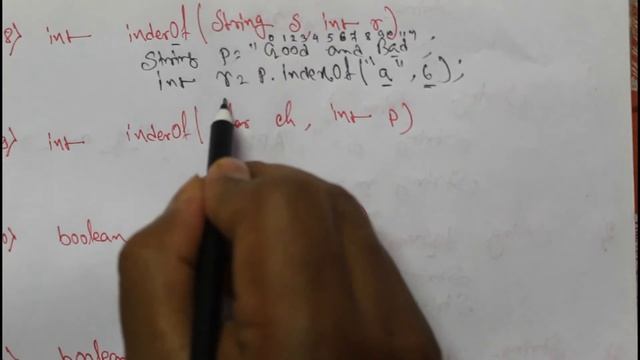 8) int indexOf(String s, int r)
0 1 2 3 4 5 6 7 8 9 10 11
String p = "Good and Bad";
int r = p.indexOf("a", 6);
9) int indexOf( ch, int p)
boolean
boolean